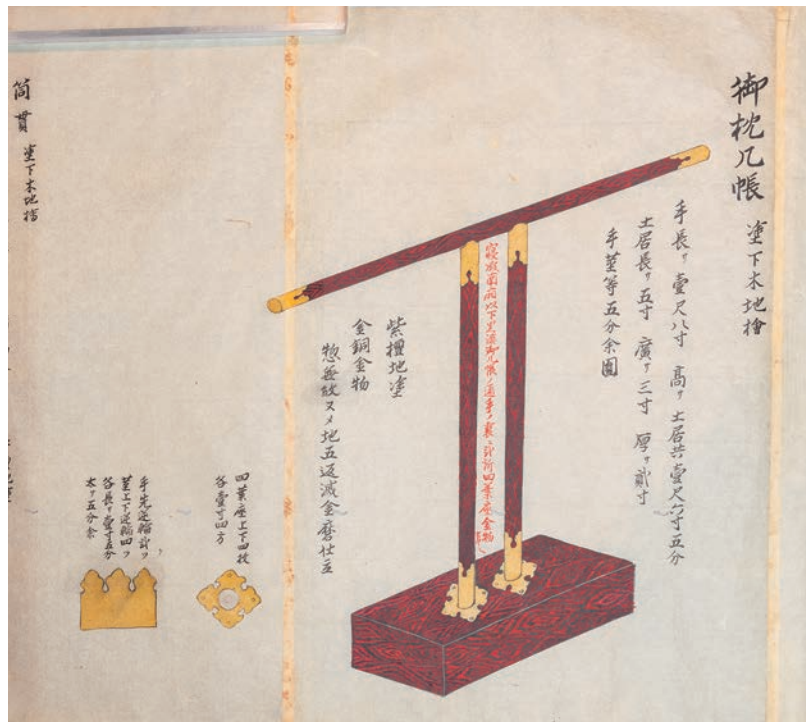 御枕几帳 塗下木地檜
手長サ壹尺八寸 高サ土居共壹尺六寸五分
土居長サ五寸 廣サ三寸 厚サ貳寸
手茎等五分余圓
寝殿南廂以下里漆御几帳ノ通手ノ裏ニ弐所四葉座金物
紫檀地塗
金銅金物
惣無敀スメ地五返滅金磨仕立
四葉座上下四枚
各壹寸四方
手先逆輪弐ツ
茎上下逆輪四ツ
各長サ壹寸五分
太サ五分余
筒貫 塗下木地檜